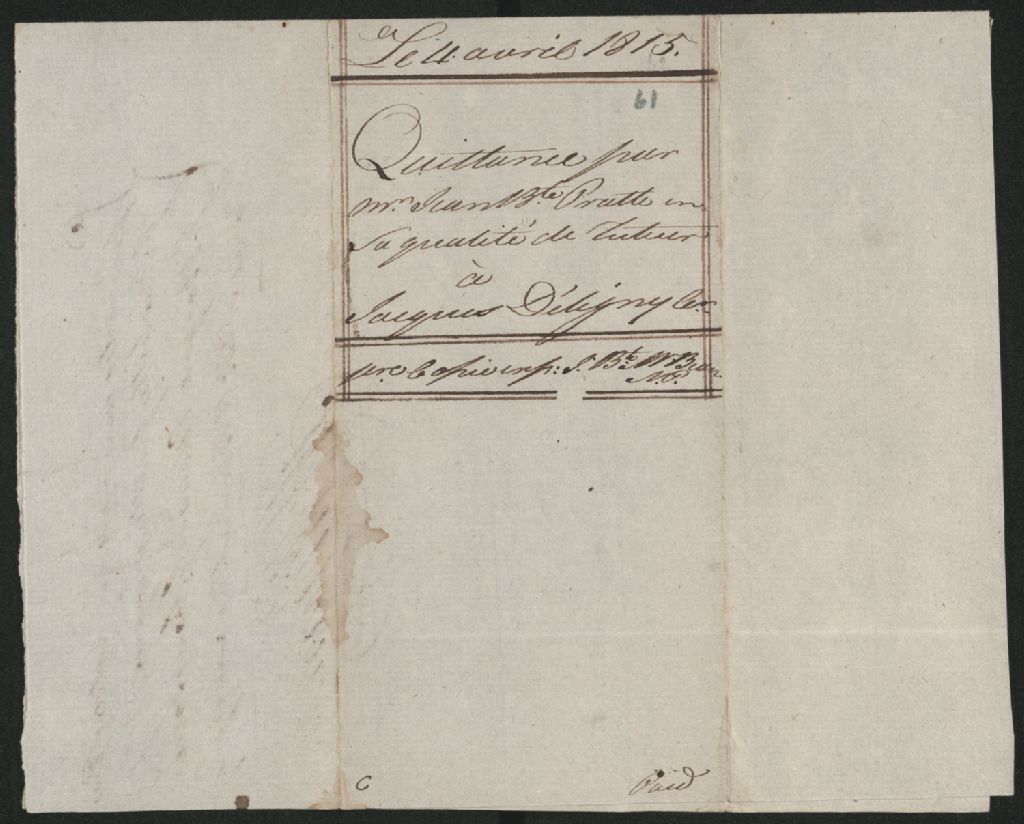 Le 4 avril 1815.
61
Quittance par
mr. Jean Bte. Pratte en
Sa qualité de Tuteur
à
Jacques Déligny
pre. Copie
N.P.
C
Paid